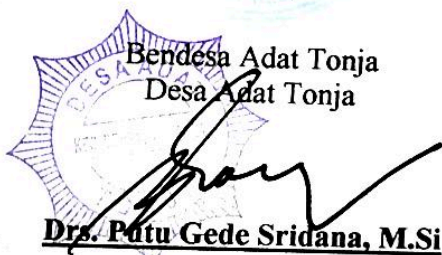 Bendesa Adat Tonja
Desa Adat Tonja
DESA ADAT
Drs. Putu Gede Sridana, M.Si